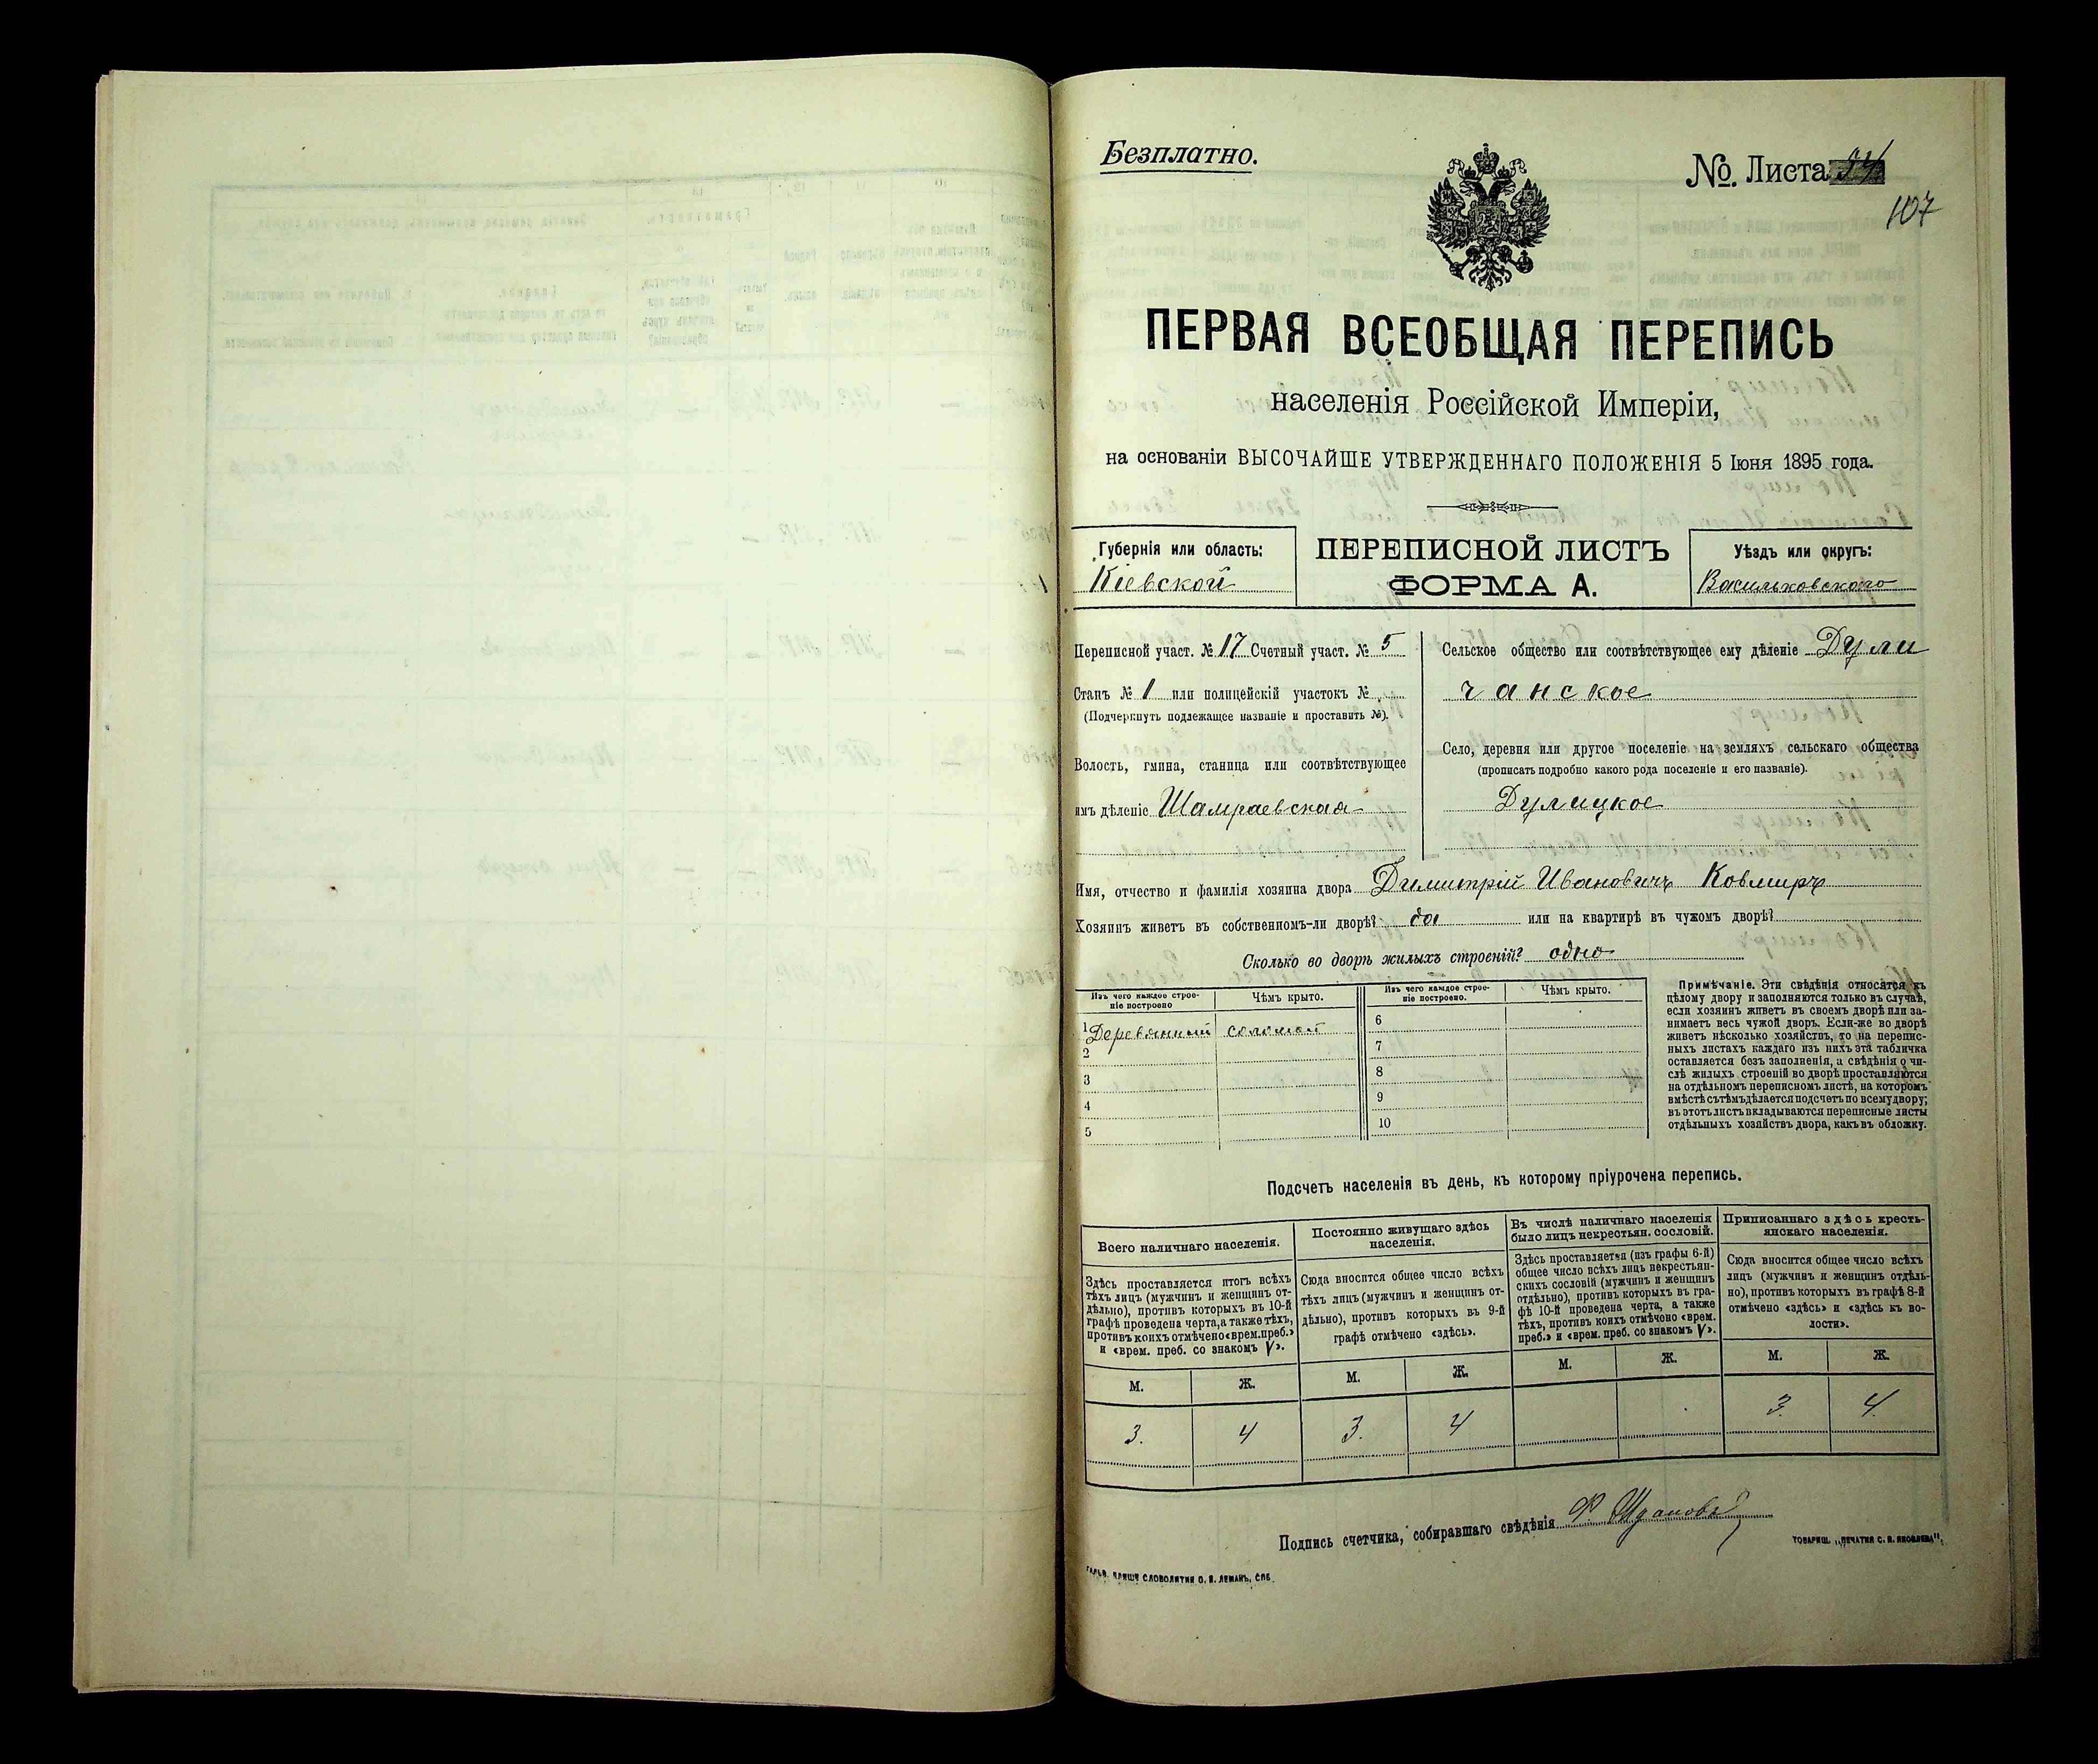 Безплатно.
№. Листа 54
107
ПЕРВАЯ ВСЕОБЩАЯ ПЕРЕПИСЬ
населенія Россійской Имперіи,
на основаніи ВЫСОЧАЙШЕ УТВЕРЖДЕННАГО ПОЛОЖЕНІЯ 5 Іюня 1895 года.
Губернія или область:
Кіевской
ПЕРЕПИСНОЙ ЛИСТЪ
ФОРМА А.
Уѣздъ или округъ:
Васильковскаго
Переписной участ. № 17 Счетный участ. № 5
Станъ № 1 или полицейскій участокъ №
(Подчеркнуть подлежащее названіе и проставить №).
Волость, гмина, станица или соотвѣтствующее
имъ дѣленіе Шамраевская
Сельское общество или соотвѣтствующее ему дѣленіе Дули
чанское
Село, деревня или другое поселеніе на земляхъ сельскаго общества
(прописать подробно какого рода поселеніе и его названіе).
Дулицкое
Имя, отчество и фамилія хозяина двора Димитрій Ивановичъ Ковмиръ
Хозяинъ живетъ въ собственномъ-ли дворѣ? да или на квартирѣ въ чужомъ дворѣ?
Сколько во дворѣ жилыхъ строеній? одно
Изъ чего каждое строе-
ніе построено
Чѣмъ крыто.
Изъ чего каждое строе-
ніе построено.
Чѣмъ крыто.
1 Деревянный соломой
2
3
4
5
6
7
8
9
10
Примѣчаніе. Эти свѣдѣнія относятся къ
цѣлому двору и заполняются только въ случаѣ,
если хозяинъ живетъ въ своемъ дворѣ или за-
нимаетъ весь чужой дворъ. Если-же во дворѣ
живетъ нѣсколько хозяйствъ, то на перепис-
ныхъ листахъ каждаго изъ нихъ эта табличка
оставляется безъ заполненія, а свѣдѣнія о чи-
слѣ жилыхъ строеній во дворѣ проставляются
на отдѣльномъ переписномъ листѣ, на которомъ
вмѣстѣ съ тѣмъ дѣлается подсчетъ по всему двору;
въ этотъ листъ вкладываются переписные листы
отдѣльныхъ хозяйствъ двора, какъ въ обложку.
Подсчетъ населенія въ день, къ которому пріурочена перепись.
Всего наличнаго населенія.
Здѣсь проставляется итогъ всѣхъ
тѣхъ лицъ (мужчинъ и женщинъ от-
дѣльно), противъ которыхъ въ 10-й
графѣ проведена черта, а также тѣхъ,
противъ коихъ отмѣчено «врем. преб.»
и «врем. преб. со знакомъ V».
Постоянно живущаго здѣсь
населенія.
Сюда вносится общее число всѣхъ
тѣхъ лицъ (мужчинъ и женщинъ от-
дѣльно), противъ которыхъ въ 9-й
графѣ отмѣчено «здѣсь».
Въ числѣ наличнаго населенія
было лицъ некрестьян. сословій.
Здѣсь проставляется (изъ графы 6-й)
общее число всѣхъ лицъ некрестьян-
скихъ сословій (мужчинъ и женщинъ
отдѣльно), противъ которыхъ въ гра-
фѣ 10-й проведена черта, а также
тѣхъ, противъ коихъ отмѣчено «врем.
преб.» и «врем. преб. со знакомъ V».
Приписаннаго здѣсь кресть-
янскаго населенія.
Сюда вносится общее число всѣхъ
лицъ (мужчинъ и женщинъ отдѣль-
но), противъ которыхъ въ графѣ 8-й
отмѣчено «здѣсь» и «здѣсь къ во-
лости».
М. Ж. М. Ж. М. Ж. М. Ж.
3. 4 3. 4 3. 4.
Подпись счетчика, собиравшаго свѣдѣнія
ТОВАРИЩ. „ПЕЧАТНЯ С. П. ЯКОВЛЕВА“,
КЛИШЕ СЛОВОЛИТНИ О. И. ЛЕМАНЪ, СПБ